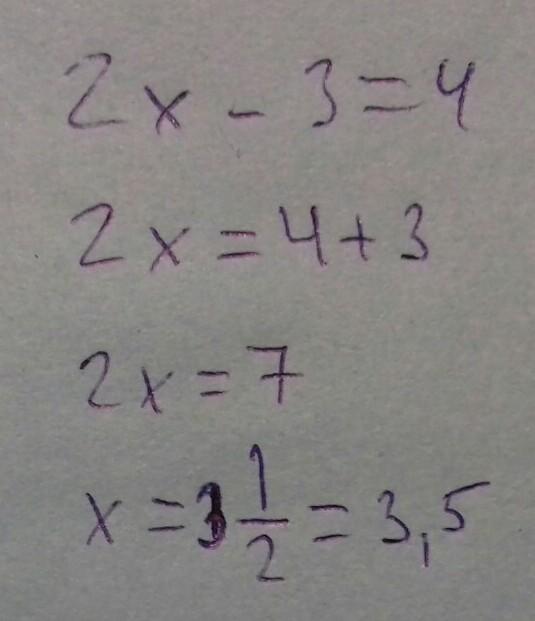 2x - 3 = 4
2x = 4 + 3
2x = 7
x = 3 1/2 = 3,5